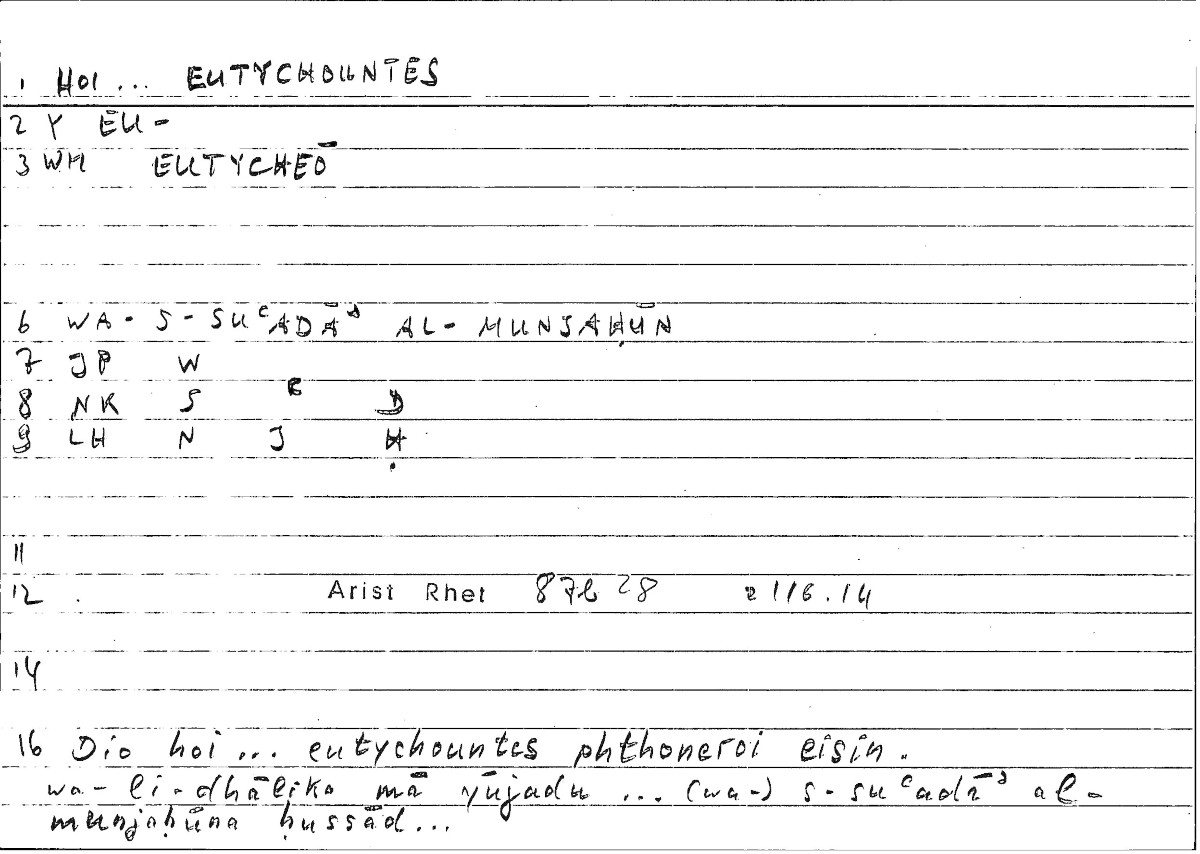 1 HOI ... EUTYCHOUNTĒS
2 Y EU-
3 WH EUTYCHEŌ
6 WA- S- SUʿADĀʾ AL- MUNJAḤŪN
7 JP W
8 NK S ʿ D
9 LH N J Ḥ
11
12 . Arist Rhet 87b 28 = 116.14
14
16 Dio hoi ... eutychountes phthoneroi eisin.
wa- li-dhālika mā yūjadu ... (wa-) s-suʿadāʾ al-
munjaḥūna ḥussād...